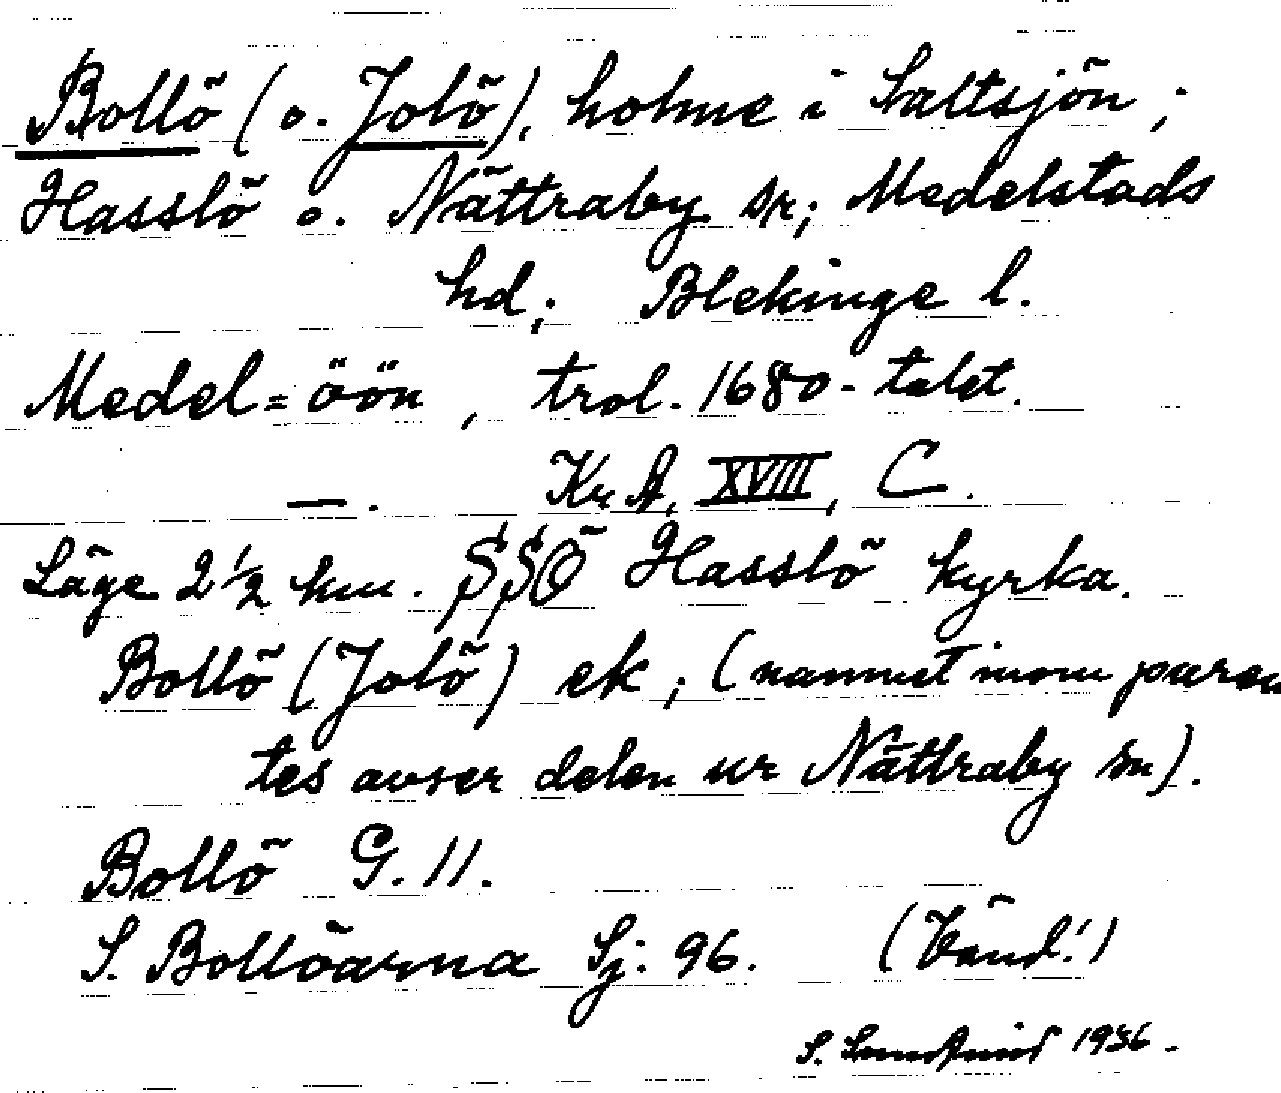 Bollö (o. Jolö), holme i Saltsjön;
Hasslö o. Nättraby sn; Medelstads
hd; Blekinge l.
Medel=öön, trol. 1680-talet.
—. Kr. A, XVIII, C.
Läge 2 1/2 km. SSÖ Hasslö kyrka.
Bollö (Jolö) ek; (namnet inom paren
tes avser delen ur Nättraby sn).
Bollö G. 11.
S. Bollöarna Sj: 96. (Vänd!)
S. 1936.